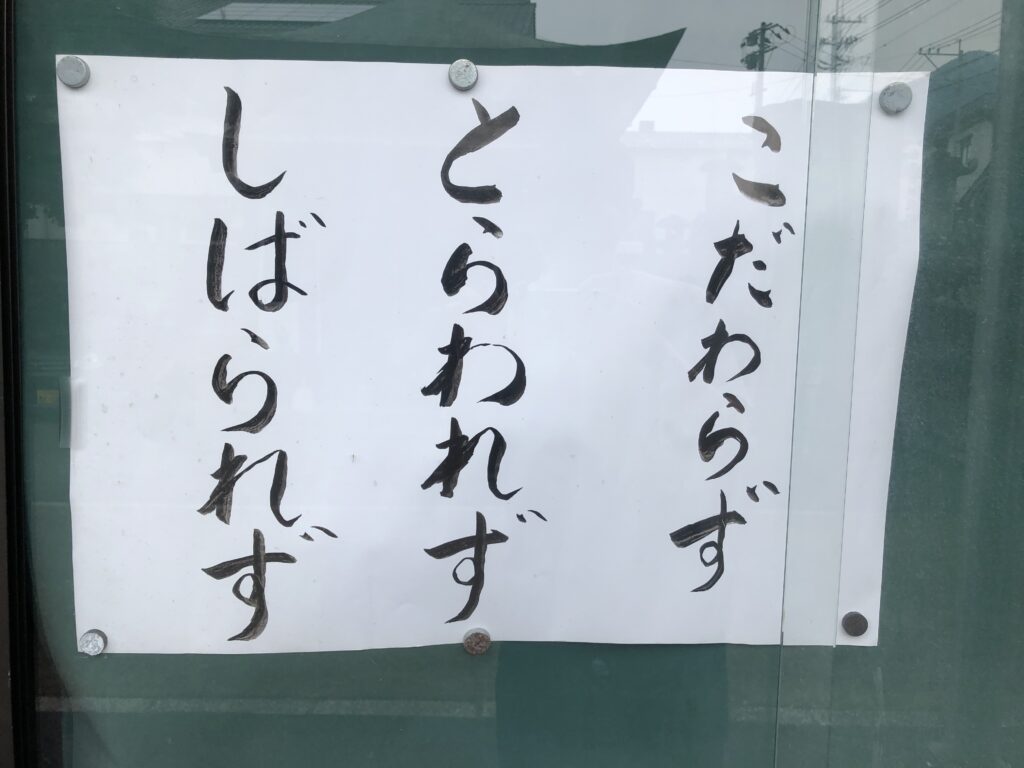 こだわらず
とらわれず
しばられず